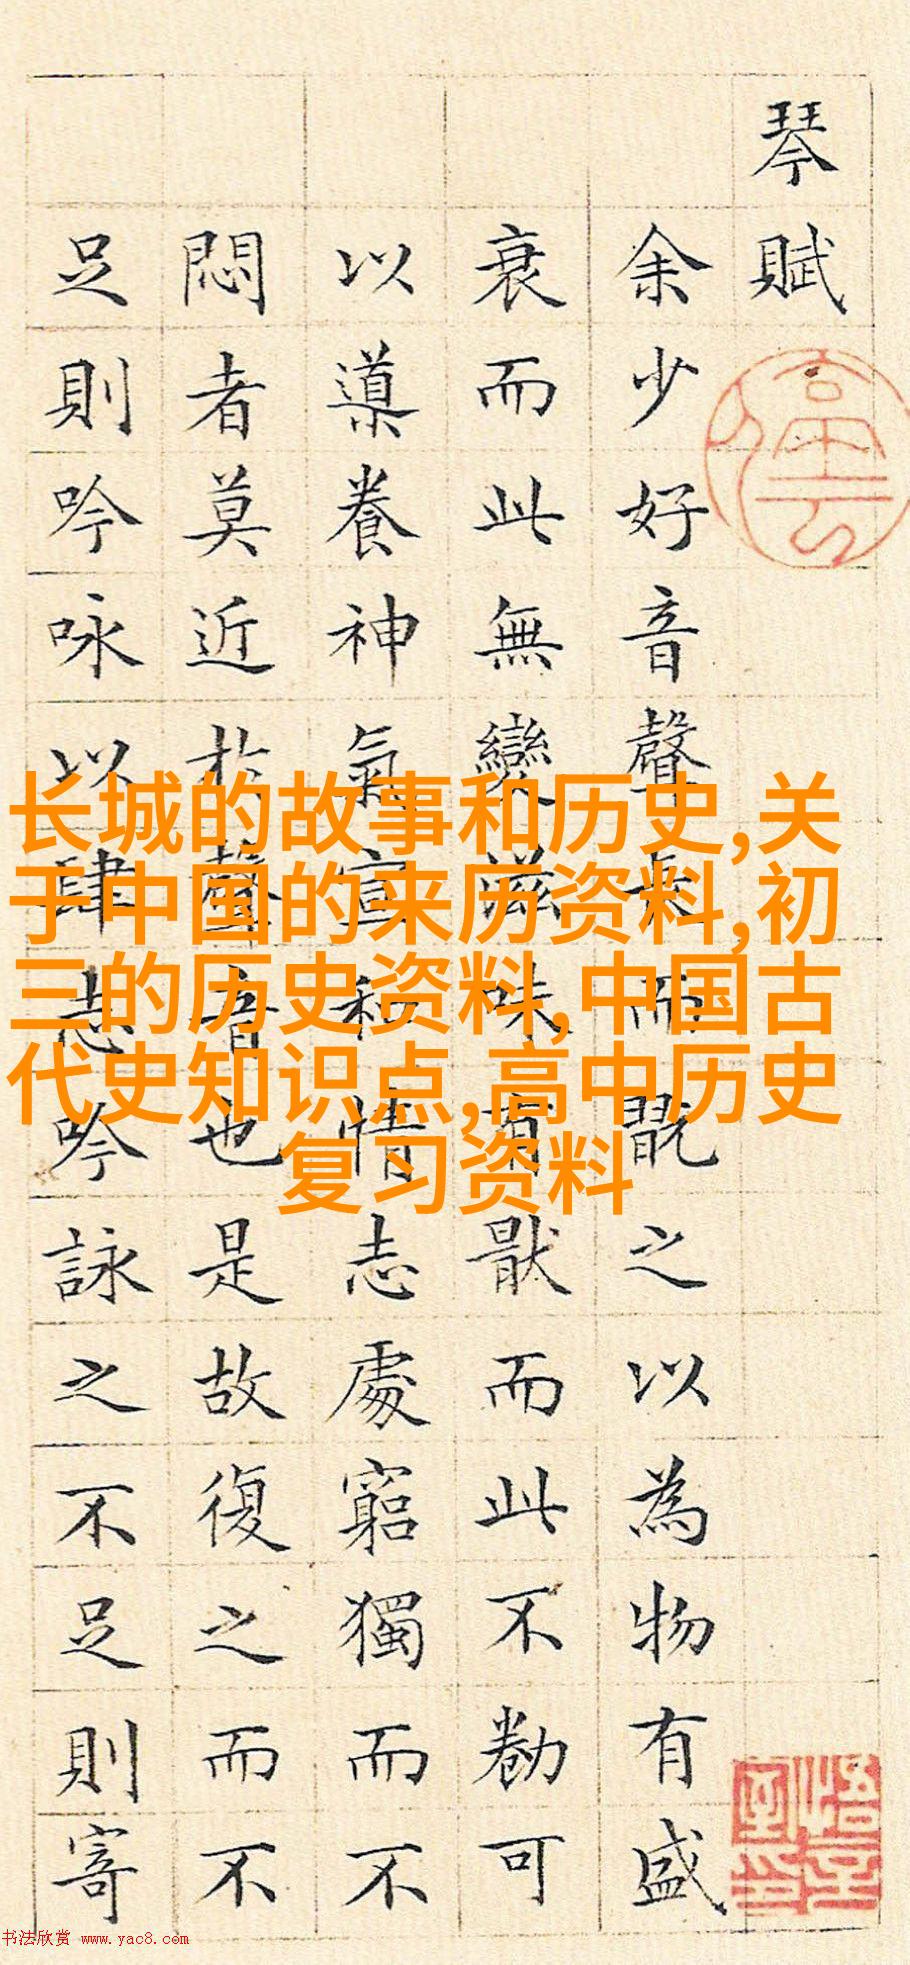 琴賦
余少好音聲長而翫之以為物有盛
衰而此無變滋味有猒而此不勌可
以導養神氣宣和情志處窮獨而不
悶者莫近於聲音也是故復之而不
足則吟咏以肆志吟詠之不足則寄
停雲
悟言室印
长城的故事和历史,关
于中国的来历资料,初
三的历史资料,中国古
代史知识点,高中历史
复习资料
书法欣赏 www.yac8.com